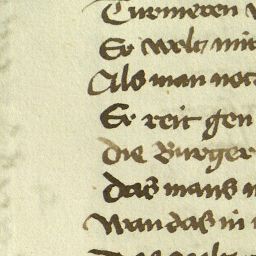 Turnieren
Er wolt mit
Als man noch
Er reit gen
Die Burger
Das mans
Wan das in